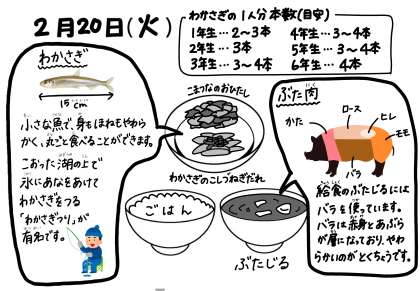 2月20日(火)
わかさぎの1人分本数(目安)
1年生…2～3本
2年生…3本
3年生…3～4本
4年生…3～4本
5年生…3～4本
6年生…4本
わかさぎ
15cm
小さな魚で、身もほねもやわら
かく、丸ごと食べることができます。
こおった湖の上で
氷にあなをあけて
わかさぎをつる
「わかさぎつり」が
有名です。
こまつなのおひたし
わかさぎのこしつねぎだれ
ごはん
ぶたじる
ぶた肉
かた
ロース
ヒレ
モモ
バラ
給食のぶたじるには
バラを使っています。
バラは赤身とあぶら
が層になっており、やわ
らかいのがとくちょうです。